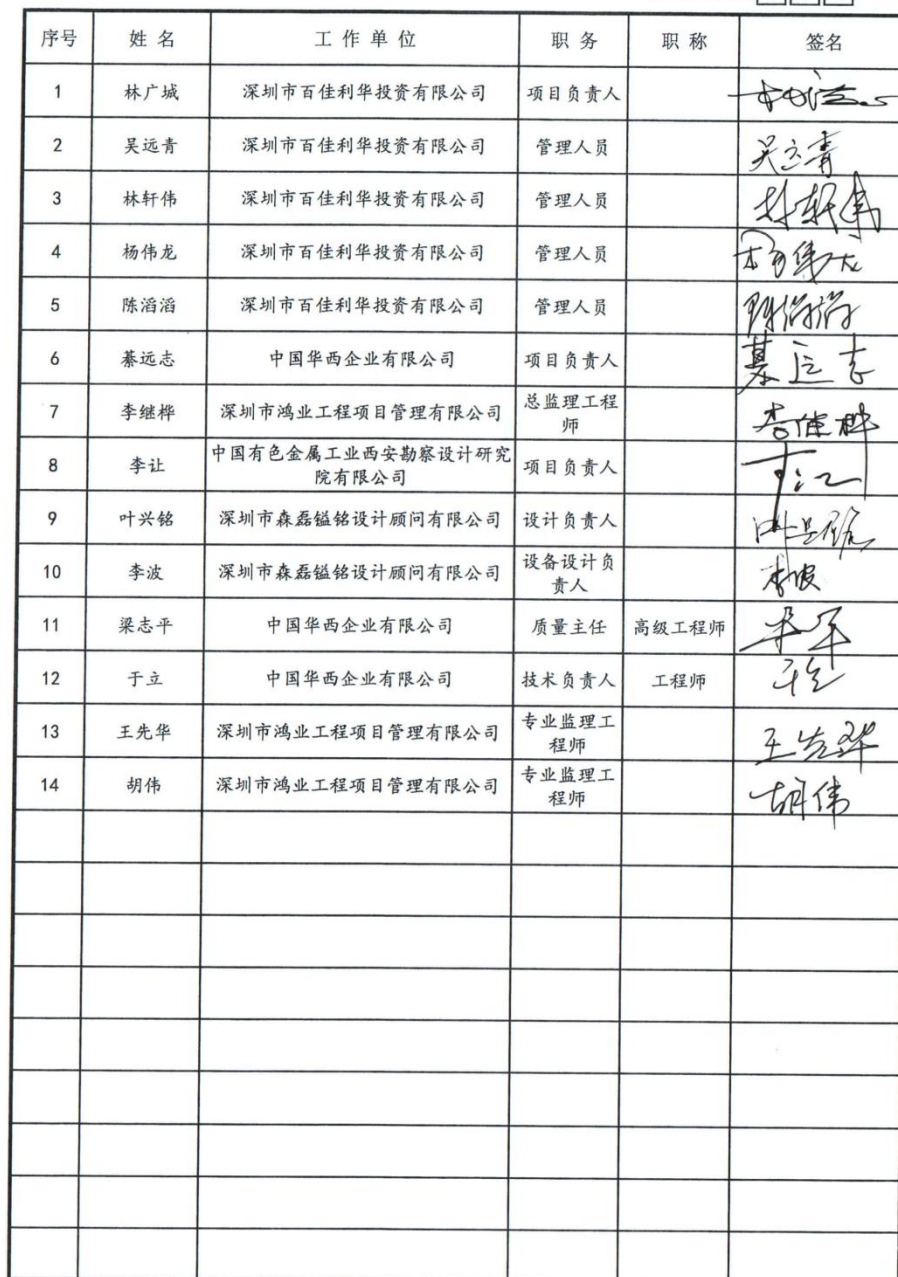 序号 姓 名 工 作 单 位 职 务 职 称 签名
1 林广城 深圳市百佳利华投资有限公司 项目负责人
2 吴远青 深圳市百佳利华投资有限公司 管理人员 吴远青
3 林轩伟 深圳市百佳利华投资有限公司 管理人员 林轩伟
4 杨伟龙 深圳市百佳利华投资有限公司 管理人员 杨伟龙
5 陈滔滔 深圳市百佳利华投资有限公司 管理人员 陈滔滔
6 綦远志 中国华西企业有限公司 项目负责人 綦远志
7 李继桦 深圳市鸿业工程项目管理有限公司 总监理工程
师 李继桦
8 李让 中国有色金属工业西安勘察设计研究
院有限公司 项目负责人
9 叶兴铭 深圳市森磊镒铭设计顾问有限公司 设计负责人 叶兴铭
10 李波 深圳市森磊镒铭设计顾问有限公司 设备设计负
责人 李波
11 梁志平 中国华西企业有限公司 质量主任 高级工程师
12 于立 中国华西企业有限公司 技术负责人 工程师 于立
13 王先华 深圳市鸿业工程项目管理有限公司 专业监理工
程师 王先华
14 胡伟 深圳市鸿业工程项目管理有限公司 专业监理工
程师 胡伟